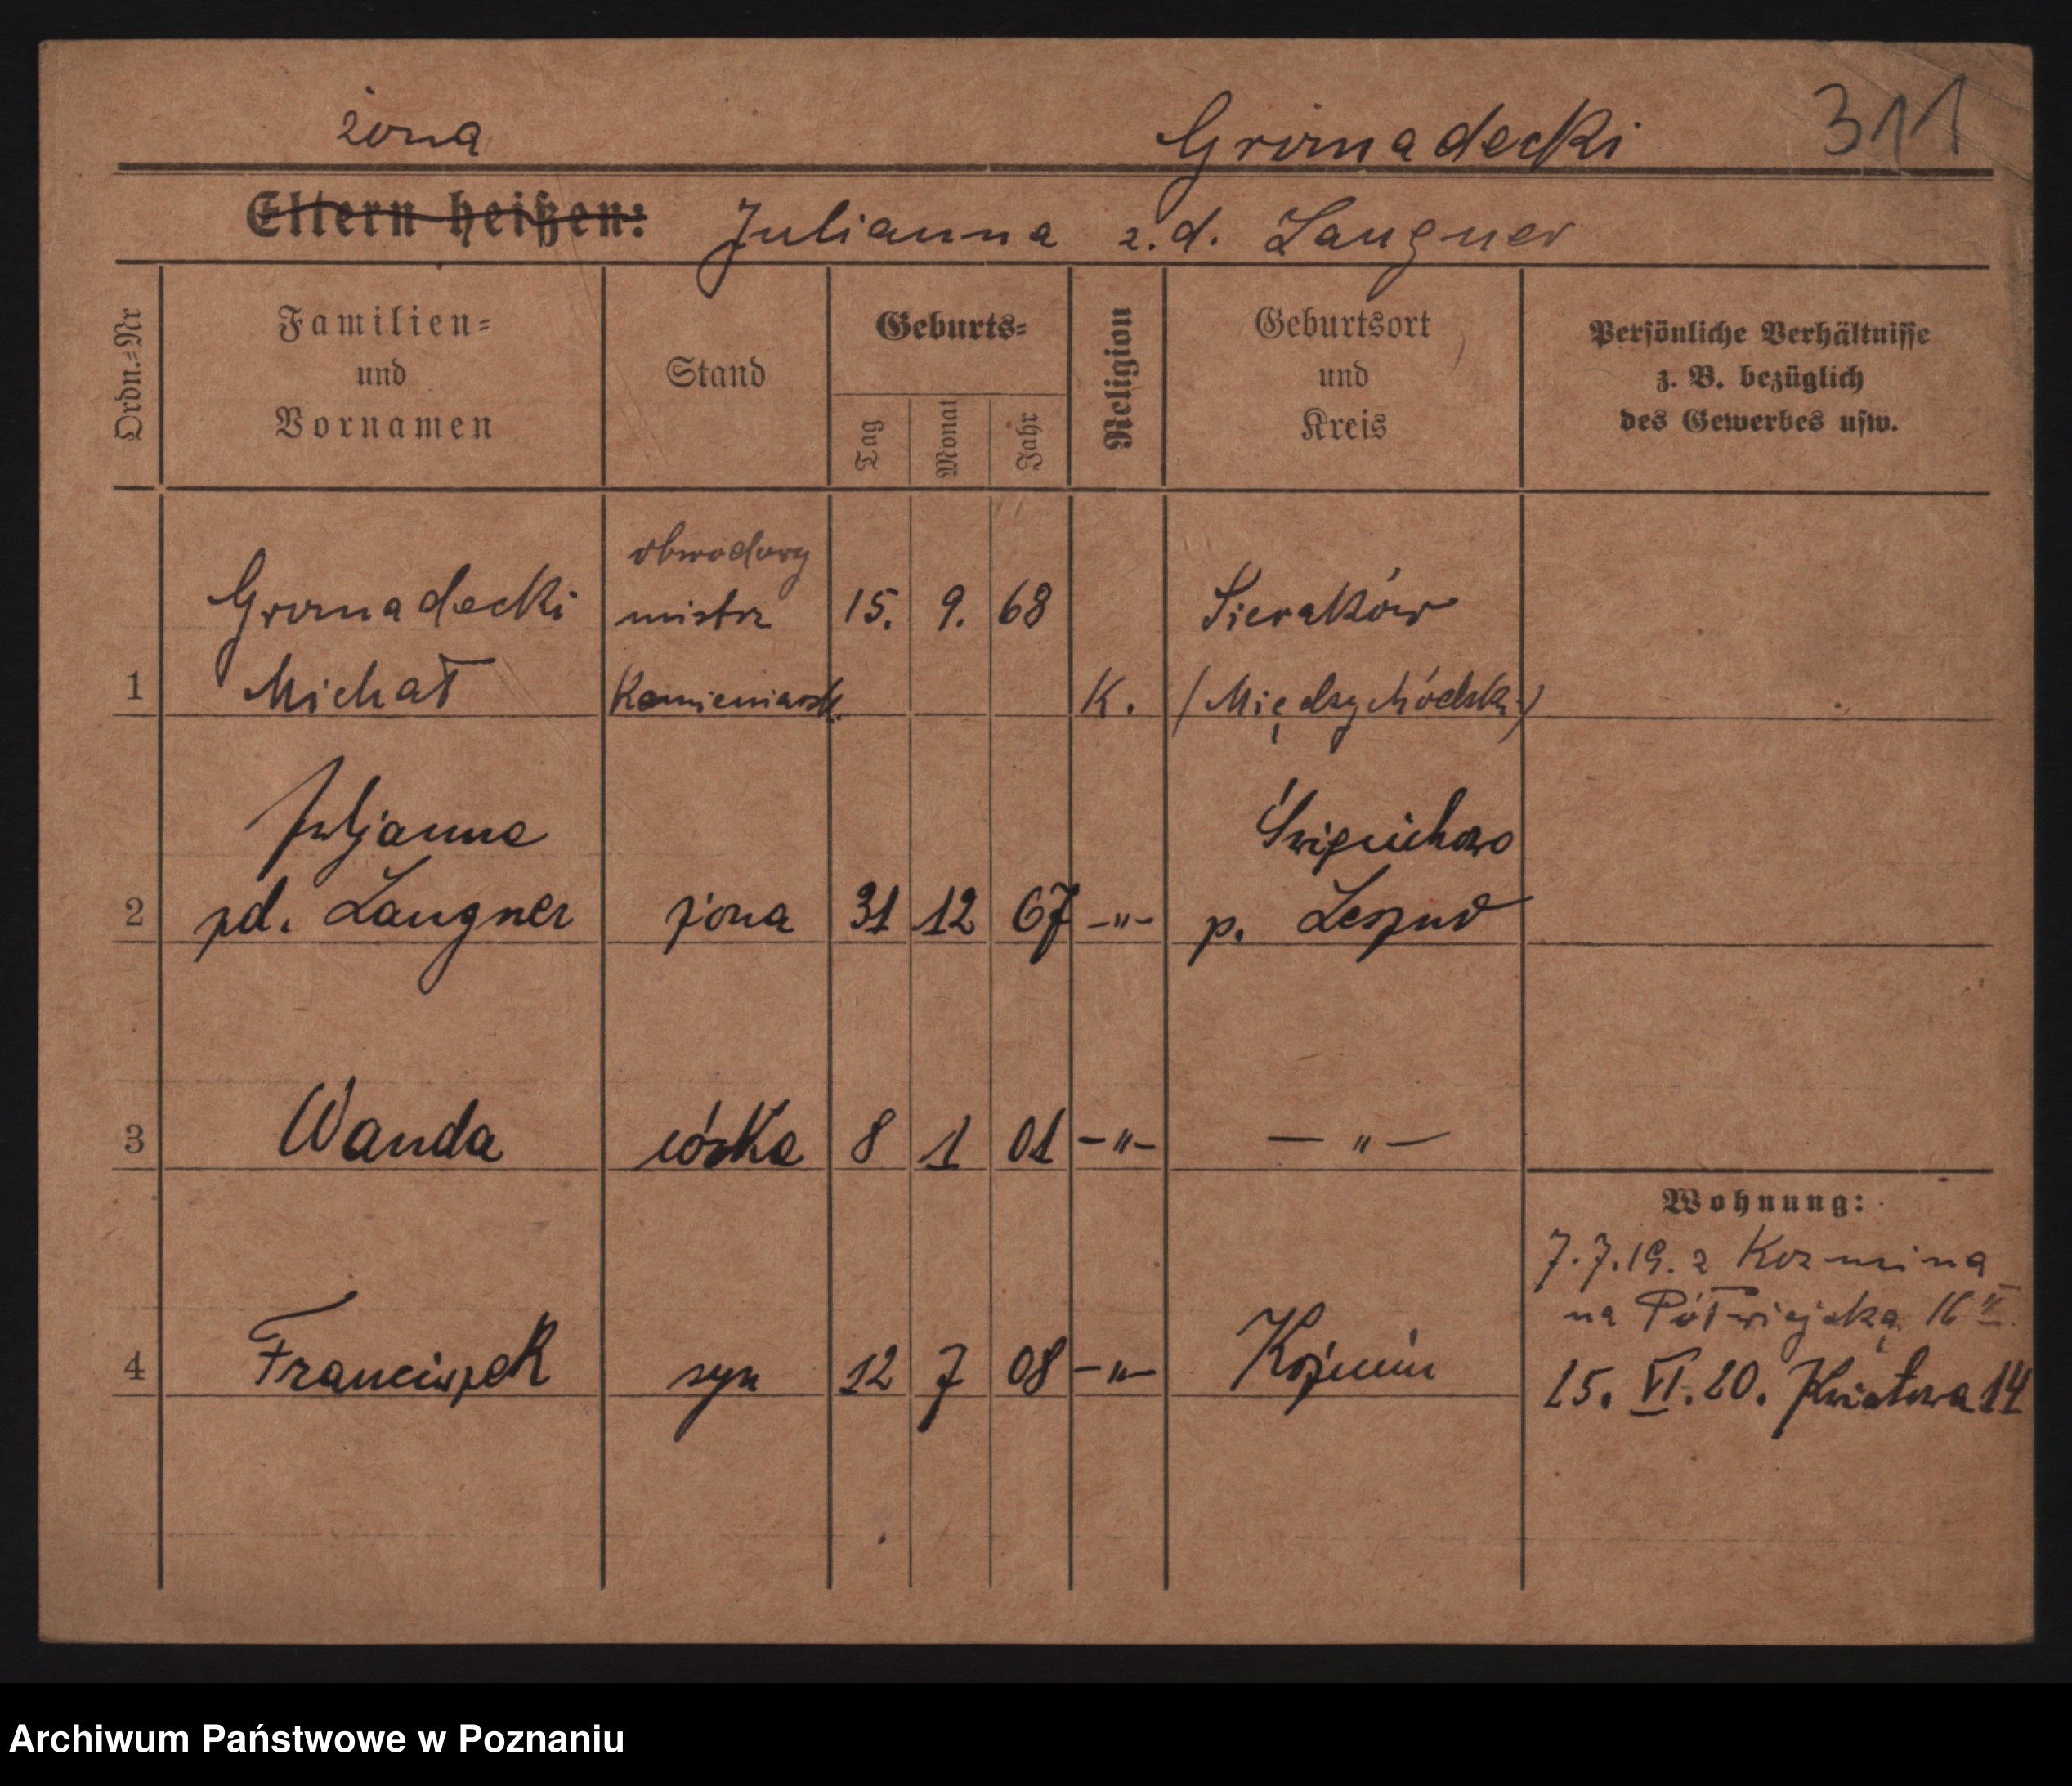 żona Gromadecki 311
Eltern heißen: Julianna z.d. Langner
Ordn.=Nr
Familien=
und
Vornamen
Stand
Geburts=
Tag
Monat
Jahr
Religion
Geburtsort
und
Kreis
Persönliche Verhältnisse
z. B. bezüglich
des Gewerbes usw.
obwodowy
Gromadecki mistrz 15. 9. 68 Sieraków
1 Michał Kamieniarsk. K. (Międzychódzk.)
Juljanna Święciechowo
2 zd. Langner żona 31 12 67 -"- p. Leszno
3 Wanda córka 8 1 01 -"- — " —
Wohnung:
7.7.19. z Kozmina
na Półwiejską 16 II.
4 Franciszek syn 12 7 08 -"- Koźmin
15. VI. 20. Kwiatowa 14
Archiwum Państwowe w Poznaniu